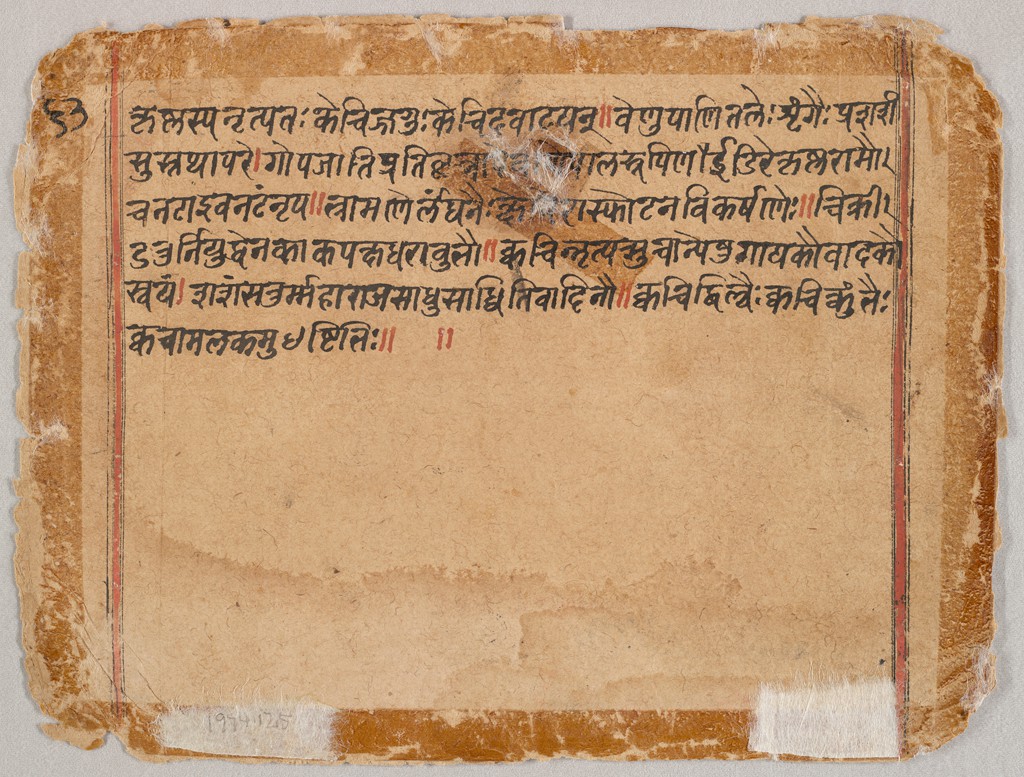 ५३ कृष्णस्य नृत्यतः केचिज्जगुः केचिदवादयन्॥ वेणुपाणितलैः शृंगैः प्रशशं
सुस्तथापरे। गोपजातिप्रति गोपालरूपिणौ। ईडिरे कृष्णरामौ
च नटाइव नटं नृप॥ भ्रामणैर्लंघनैः स्फोटनविकर्षणैः॥ चिक्री
डतुर्नियुद्धेन काकपक्षधरावुभौ॥ क्वचिन्नृत्यत्सु चान्येषु गायकौ वादकौ
स्वयं। शशंसतुर्महाराज साधुसाध्विति वादिनौ॥ क्वचिद्बिल्वैः क्वचित्कुंभैः
क्वचामलकमुष्टिभिः॥ ॥